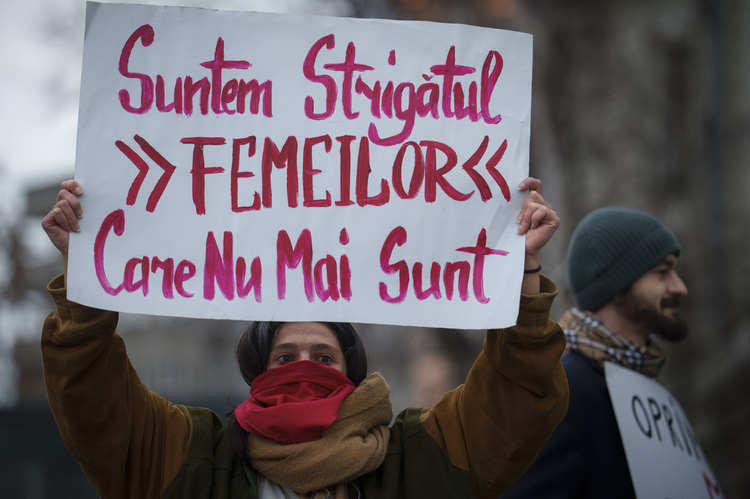 Suntem Strigătul
>> FEMEILOR <<
Care Nu Mai Sunt
OPRI